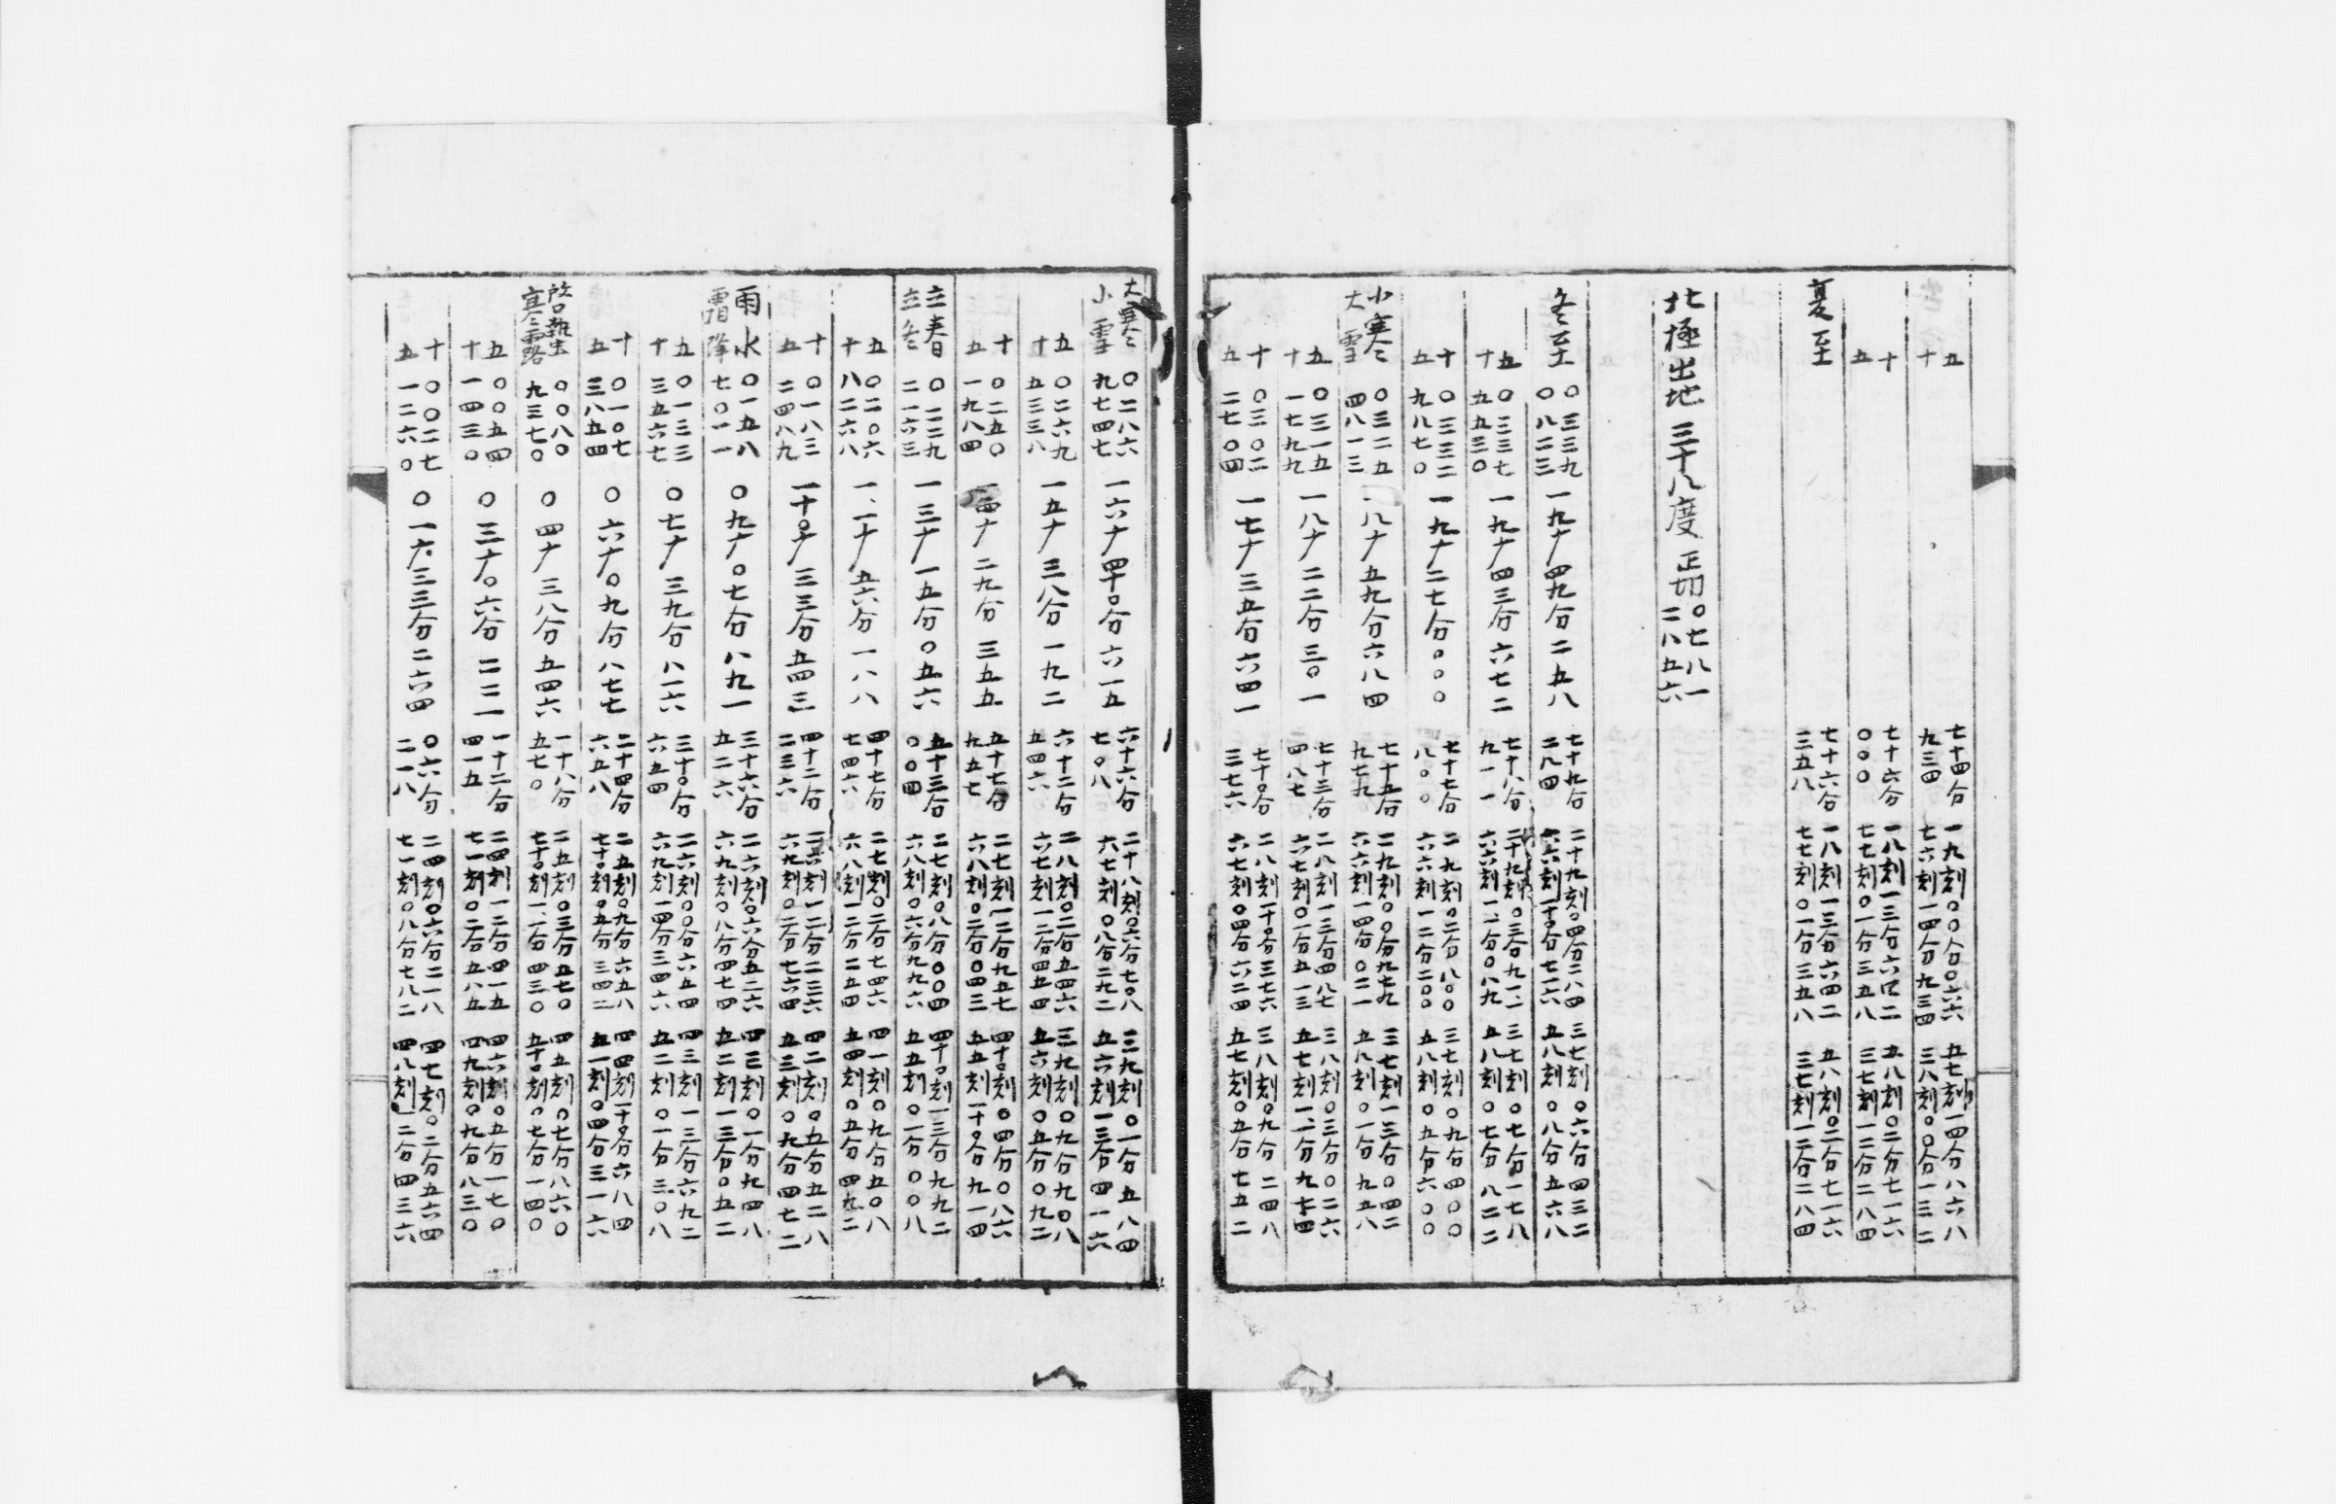 五十 七十四分九三四 一九刻〇〇分〇六六 七六刻一四分九三四 五七刻一四分八六八 三八刻〇〇分一三二
十五 七十六分〇〇〇 一八刻一三分六四二 七七刻〇一分三五八 五八刻〇二分七一六 三七刻一二分二八四
夏至 七十六分三五八 一八刻一三分六四二 七七刻〇一分三五八 五八刻〇二分七一六 三七刻一二分二八四
北極出地 三十八度 正切〇七八一二八五六
冬至 〇三三九〇八二三 一九十四九分二五八 七十九分二八四 二十九刻〇四分二八四 六六刻一十〇分七一六 三七刻〇六分四三二 五八刻〇八分五六八
五十 〇三三七九五三〇 一九十四三分六七二 七十八分九一一 二十九刻〇三分九一一 六六刻一一分〇八九 三七刻〇七分一七八 五八刻〇七分八二二
十五 〇三三二九八七〇 一九十二七分〇〇〇 七十七分八〇〇 二九刻〇二分八〇〇 六六刻一二分二〇〇 三七刻〇九分四〇〇 五八刻〇五分六〇〇
小寒大雪 〇三二五四八一三 一八十五九分六八四 七十五分九七九 二九刻〇〇分九七九 六六刻一四分〇二一 三七刻一三分〇四二 五八刻〇一分九五八
五十 〇三一五一七九九 一八十二二分三〇一 七十三分四八七 二八刻一三分四八七 六七刻〇一分五一三 三八刻〇三分〇二六 五七刻一一分九七四
十五 〇三〇二二七〇四 一七十三五分六四一 七十〇分三七六 二八刻一十〇分三七六 六七刻〇四分六二四 三八刻〇九分二四八 五七刻〇五分七五二
大寒小雪 〇二八六九七四七 一六十四十〇分六一五 六十六分七〇八 二十八刻〇六分七〇八 六七刻〇八分二九二 三九刻〇一分五八四 五六刻一三分四一六
五十 〇二六九五三三八 一五十三八分一九二 六十二分五四六 二八刻〇二分五四六 六七刻一二分四五四 三九刻〇九分九〇八 五六刻〇五分〇九二
十五 〇二五〇一九八四 一四十二九分三五五 五十七分九五七 二七刻一二分九五七 六八刻〇二分〇四三 四十〇刻〇四分〇八六 五五刻一十〇分九一四
立春立冬 〇二二九二一六三 一三十一五分〇五六 五十三分〇〇四 二七刻〇八分〇〇四 六八刻〇六分九九六 四十〇刻一三分九九二 五五刻〇一分〇〇八
五十 〇二〇六八二六八 一一十五六分一八八 四十七分七四六 二七刻〇二分七四六 六八刻一二分二五四 四一刻〇九分五〇八 五四刻〇五分四九二
十五 〇一八三二四八九 一十〇十三三分五四三 四十二分二三六 二六刻一二分二三六 六九刻〇二分七六四 四二刻〇五分五二八 五三刻〇九分四七二
雨水霜降 〇一五八七〇一一 〇九十〇七分八九一 三十六分五二六 二六刻〇六分五二六 六九刻〇八分四七四 四三刻〇一分九四八 五二刻一三分〇五二
五十 〇一三三三五六七 〇七十三九分八一六 三十〇分六五四 二六刻〇〇分六五四 六九刻一四分三四六 四三刻一三分六九二 五二刻〇一分三〇八
十五 〇一〇七三八五四 〇六十〇九分八七七 二十四分六五八 二五刻〇九分六五八 七十〇刻〇五分三四二 四四刻一十〇分六八四 五一刻〇四分三一六
啓蟄寒露 〇〇八〇九三七〇 〇四十三八分五四六 一十八分五七〇 二五刻〇三分五七〇 七十〇刻一一分四三〇 四五刻〇七分八六〇 五十〇刻〇七分一四〇
五十 〇〇五四一四三〇 〇三十〇六分二二一 一十二分四一五 二四刻一二分四一五 七一刻〇二分五八五 四六刻〇五分一七〇 四九刻〇九分八三〇
十五 〇〇二七一二六〇 〇一六三三分二六四 〇六分二一八 二四刻〇六分二一八 七一刻〇八分七八二 四七刻〇二分五六四 四八刻一二分四三六